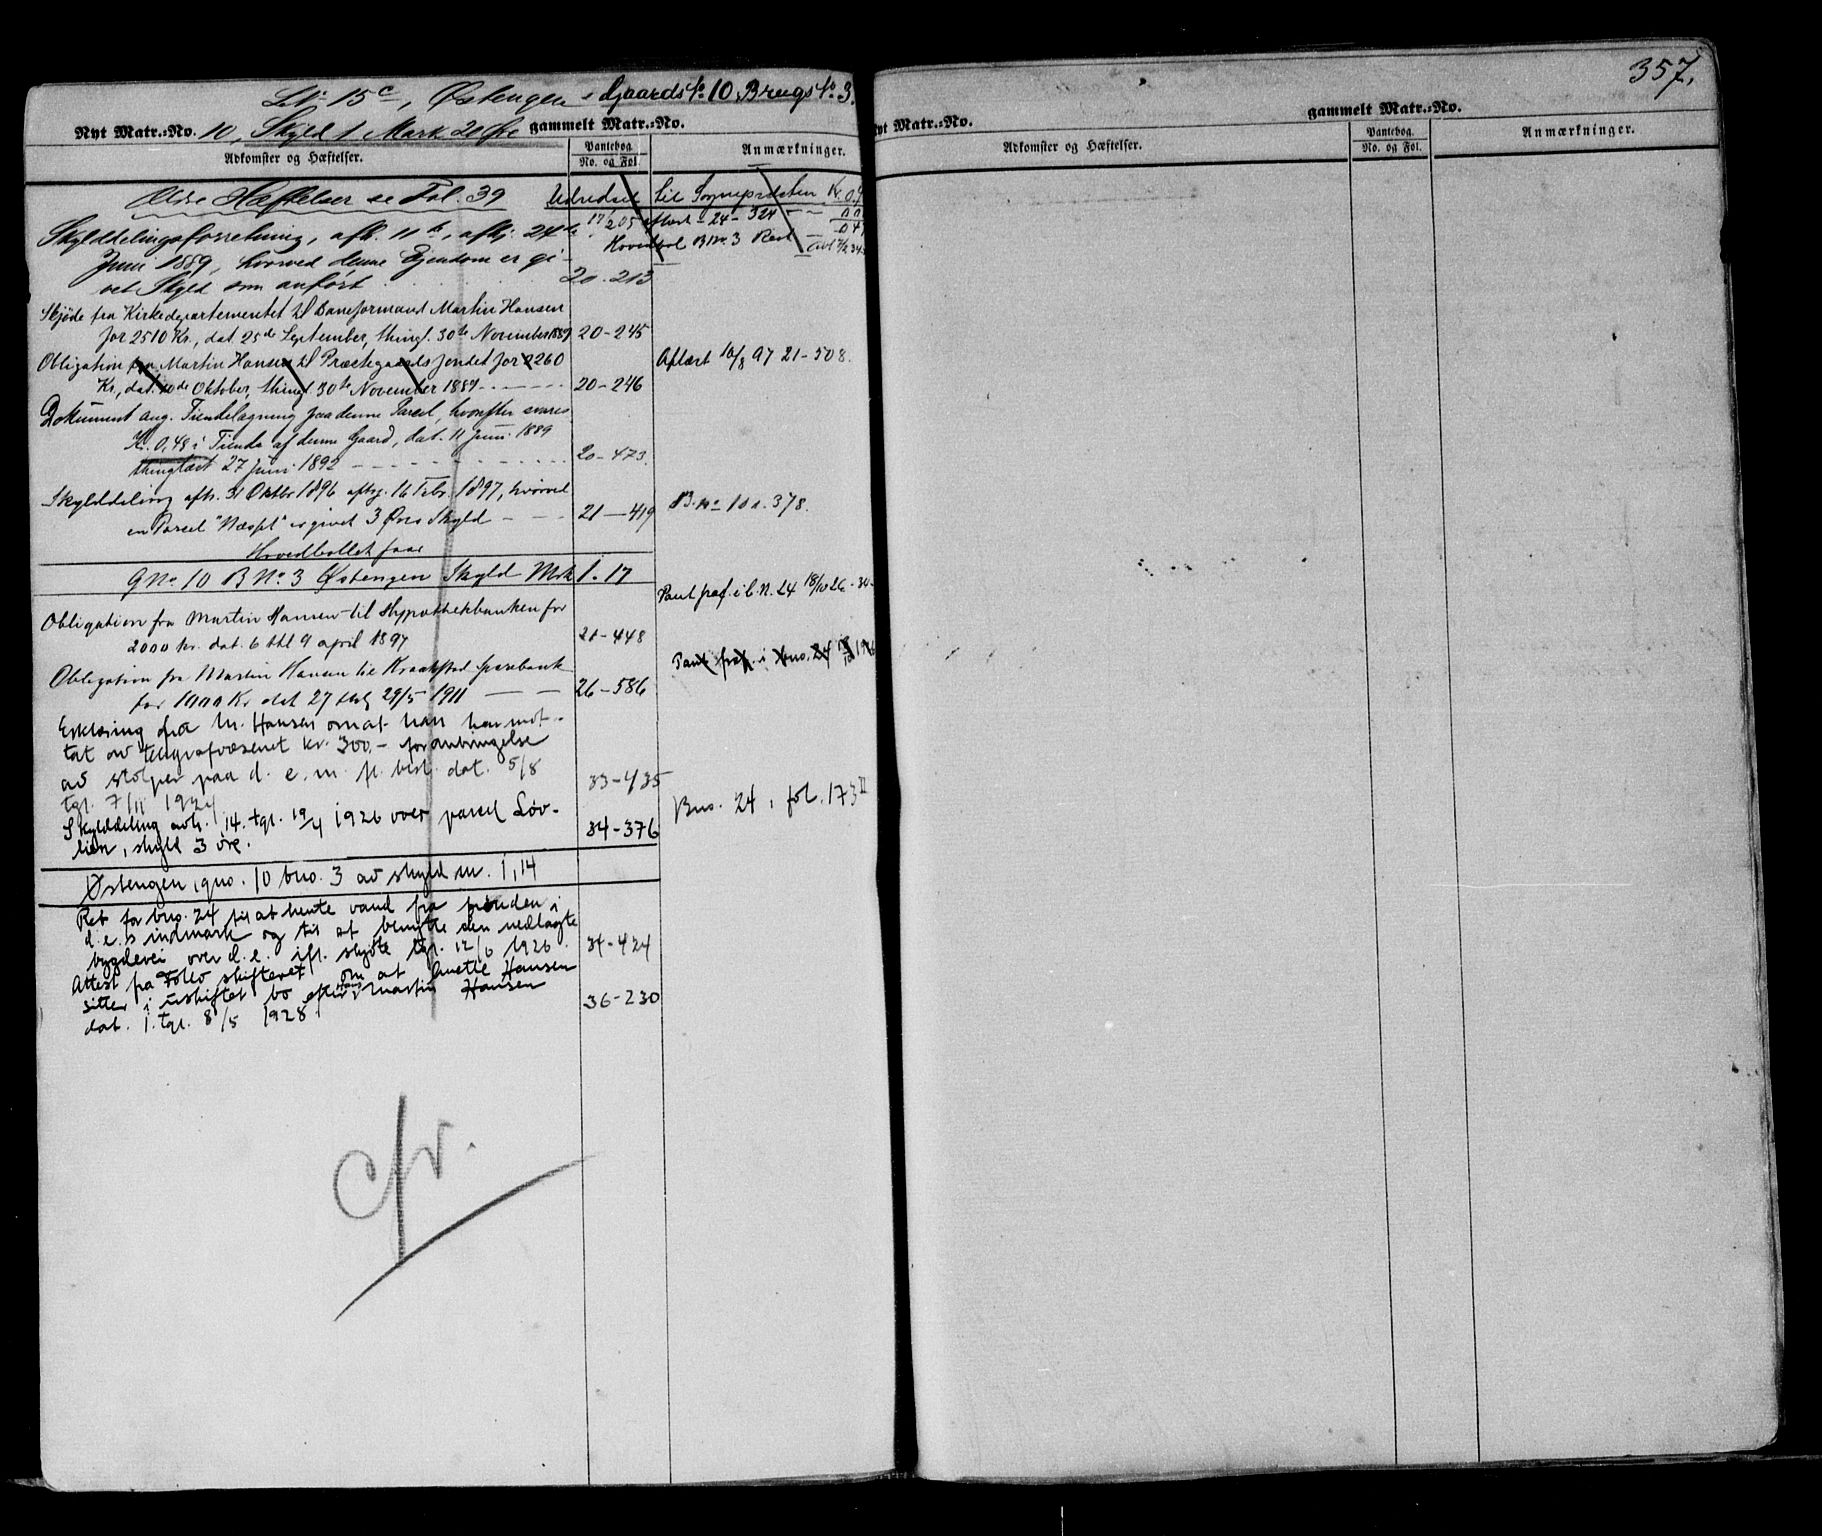 L.Nr. 15c, Østengen - Gaards No. 10 Brugs No. 3.
Nyt Matr.-No. 10, Skyld 1 Mark 20 Øre gammelt Matr.-No.
Adkomster og Hæftelser.
Pantebog.
No. og Fol.
Anmærkninger.
Ældre Hæftelser se Fol. 39
Udredsel til Sognepræsten Kr.
17/2 05 afløst - 24 - 324
Hovedbol B.No. 3 Rest
Skylddelingsforretning, afh. 11te, afhj. 24de
Juni 1889, hvorved denne Ejendom er gi-
vet Skyld som anført 20-213
Skjøde fra Kirkedepartementet til Baneformand Martin Hansen
for 2510 Kr., dat. 25de September, thingl. 30te November 1889 20-245
Obligation fra Martin Hansen til Præstegaardsfondet for 2260
Kr., dat. 10de Oktober, thingl. 30te November 1889 20-246
Aflæst 10/8 97 21-508.
Dokument ang. Tiendelægning paa denne Parcel, hvorefter svares
Kr. 0,48 i Tiende af denne Gaard, dat. 11 Juni 1889
thinglæst 27 Juni 1892 20-473.
Skylddeling afh. 31 Oktbr 1896 afhj. 16 Febr. 1897, hvorved
en Parcel "Næsset" er givet 3 Øres Skyld 21-419
B.No 10 a. 378.
Hovedbøllet faar
G No. 10 B No. 3 Østengen Skyld Mrk 1.17
Obligation fra Martin Hansen til Hypothekbanken for
2000 kr. dat. 6 thl 9 april 1897 21-448
Pant fraf. i b.n. 24 18/10 26 - 34-
Obligation fra Martin Hansen til Kraakstad sparebank
for 1000 Kr dat 27 thl 29/5 1911 26-586
Pant fraf. i bno. 24
Erklæring fra M. Hansen om at han har mot-
tat av telegrafvæsenet kr. 300.- for anbringelse
av stolper paa d. e. m. fl. best. dat. 5/8
tgl. 7/11 1924 33-435
Skylddeling avh. 14. tgl. 19/4 1926 over parsel Løv-
lien, skyld 3 øre. 34-376
Bno. 24, fol. 173 II
Østengen, gno. 10 bno. 3 av skyld m. 1,14
Ret for bno. 24 til at hente vand fra brønden i
d.e.s indmark og til at benytte den nedlagte
bygdevei over d.e. ifl. skjøte tgl. 12/6 1926. 34-424
Attest fra Follo skifteret om at Anette Hansen
sitter i uskiftet bo efter mann Martin Hansen
dat. 1. tgl. 8/5 1928. 36-230
cfr.
357.
Nyt Matr.-No.
gammelt Matr.-No.
Adkomster og Hæftelser.
Pantebog.
No. og Fol.
Anmærkninger.